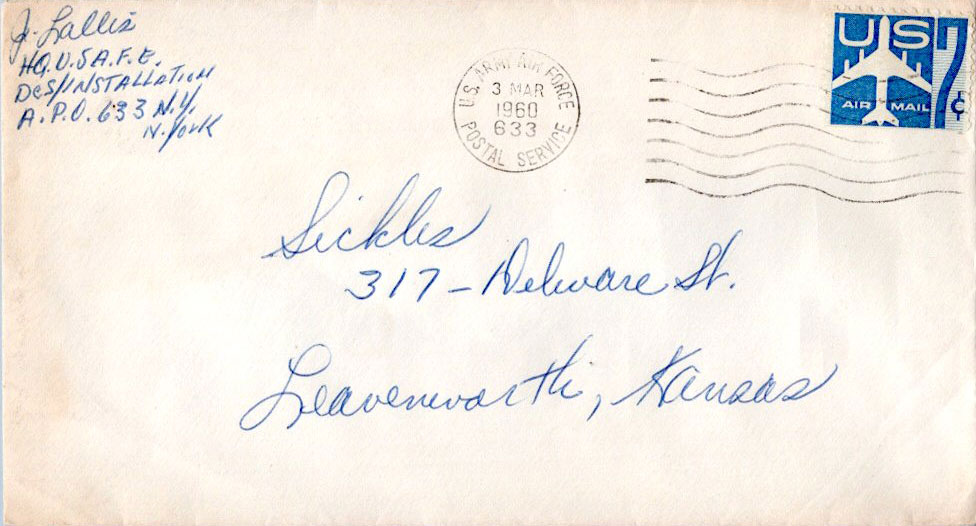 Jr. Lallis
HQ.U.S.A.F.E.
DCS/INSTALLATION
A.P.O. 633 N.Y.
N.York
U.S. ARMY AIR FORCE
3 MAR
1960
633
POSTAL SERVICE
US 7¢
AIR MAIL
Sickles
317 - Delware St.
Leavenworth, Kansas